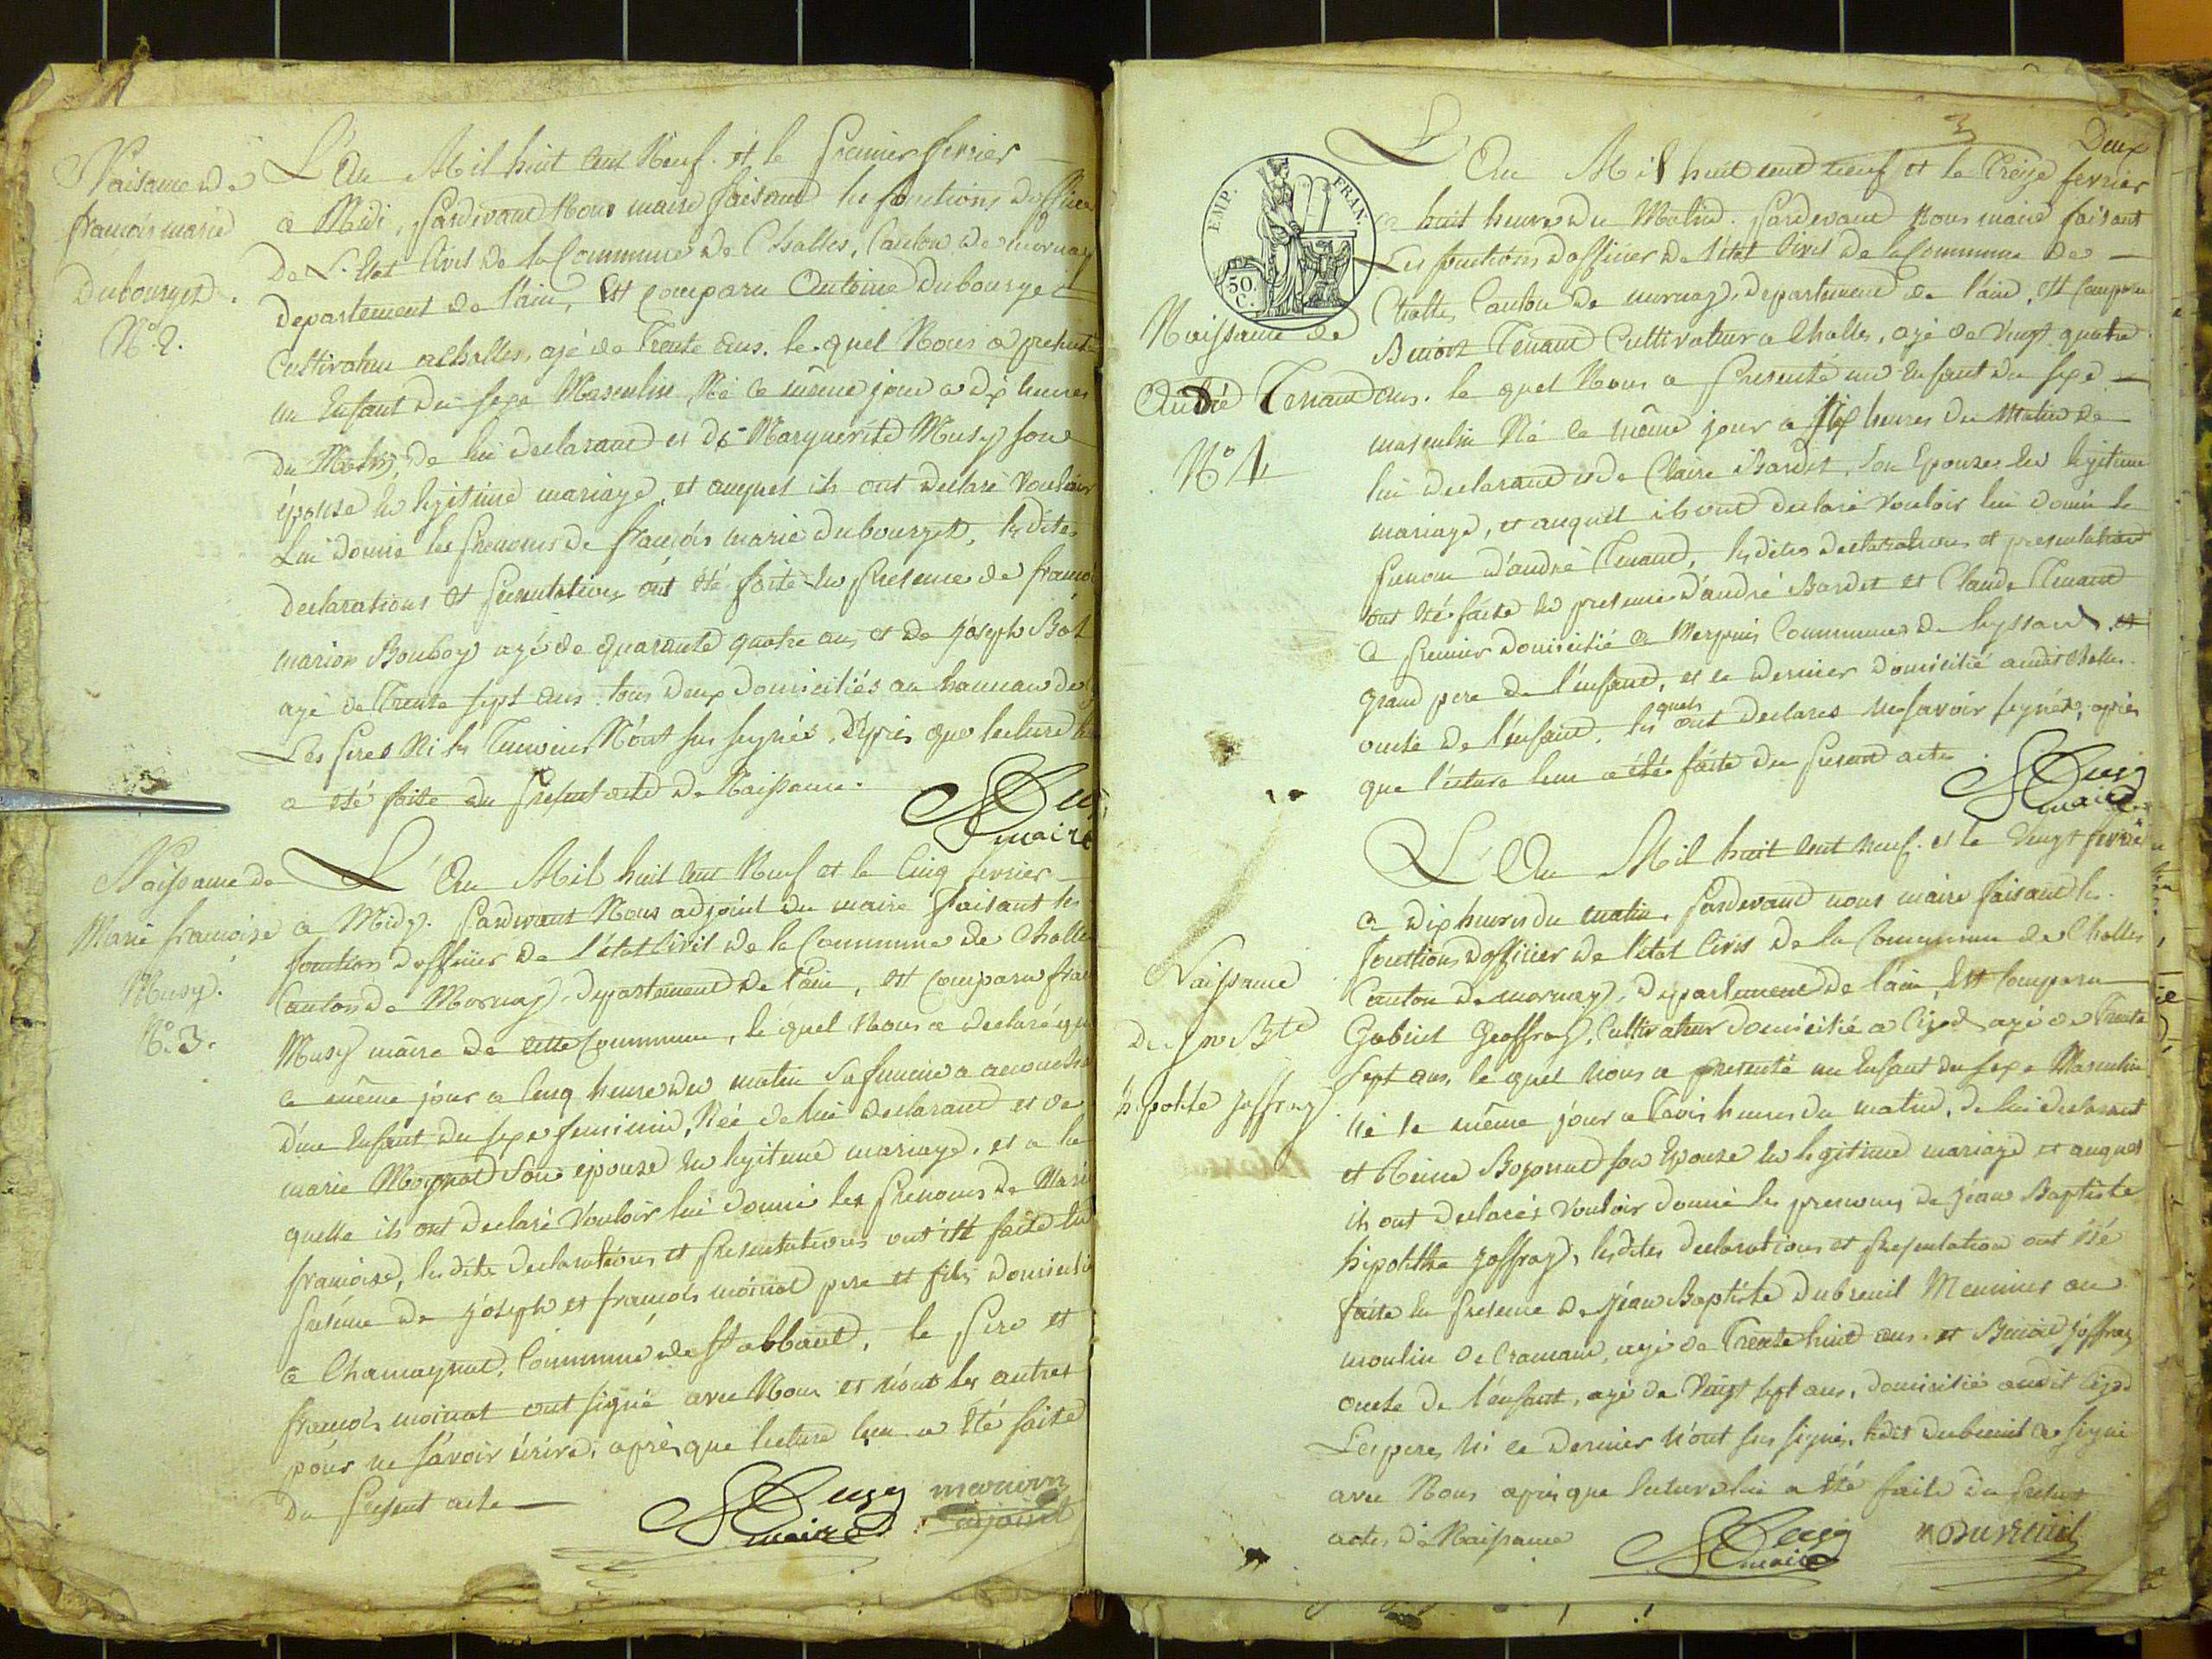 Naissance de
françois marie
Dubourget.
N.º 2.
L'an Mil huit Cent Neuf. et le premier fevrier
a Midi, pardevant Nous maire faisant les fonctions d'officier
De L'etat Civil de la Commune de Challes, Canton de mornay
departement de l'ain, Est Comparu Antoine Dubourget
Cultivateur a Challes, agé de Trente ans. le quel Nous a presenté
un Enfant du sexe Masculin Né le même jour a dix heures
du Matin, de lui declarant et de Marguerite Musy son
épouse en legitime mariage, et auquel ils ont declaré Vouloir
Lui donné les prenoms de françois marie dubourget, lesdites
Declarations et presentations ont été faite en presence de françois
marion Bouboy agé de quarante quatre ans et de joseph Bol
agé de Trente sept ans tous deux domiciliés au hameau de
Les peres Ni les Temoins N'ont sus signés, Après que lecture
a été faite du present acte de Naissance.
Musy
maire
Naissance de
Marie françoise
Musy.
Nº 3.
L'an Mil huit Cent Neuf et le Cinq fevrier
a Midy. pardevant Nous adjoint du maire faisant les
fonction d'officier de l'etat Civil de la Commune de Challes
Canton de Mornay, departement de l'ain, est Comparu
Musy maire de cette Commune, le quel Nous a declaré que
le même jour a Cinq heure du matin sa femme a accouché
d'un Enfant du sexe feminin, Née de lui declarant et de
marie Moynat son épouse en legitime mariage, et a la
quelle ils ont declaré Vouloir lui donné les prenoms de Marie
françoise, lesdite declarations et presentations ont été faite en
presence de joseph et françois moinat pere et fils domicilié
a Chamagnat, Commune de St abbant, le pere et
françois moinat ont signé avec Nous et Nont les autres
pour ne savoir écrire, après que lecture leur a été faite
du present acte
Musy
maire
adjoint
Deux
EMP. FRAN.
50.
C.
L'an Mil huit cent neuf et le Treize fevrier
a huit heures du Matin. pardevant Nous maire faisant
Les fonctions d'officier de l'etat Civil de la Commune de
Challes, Canton de mornay, departement de l'ain, est Comparu
Benoit Tenand Cultivateur a Challes, agé de Vingt quatre
ans. le quel Nous a presenté un Enfant du sexe
masculin Né le même jour a six heures du Matin de
lui declarant et de Claire Bardet, son Epouse en legitime
mariage, et auquel ils ont declaré Vouloir lui donné le
prenom d'andré Tenand, lesdites declarations et presentations
ont été faite en presence d'andré Bardet et Claude Tenand
le premier domicilié a Merpuis Commune de leyssard, et
grand pere de l'enfant, et le dernier domicilié audit Challes
oncle de l'enfant, lesquels ont declarés Ne savoir signés, après
que lecture leur a été faite du present acte
Musy
maire
Naissance de
André Tenand
Nº 4
L'an Mil huit Cent neuf. et le Vingt fevrier
a dix heures du matin, pardevant nous maire faisant les
fonctions d'officier de l'etat Civil de la Commune de Challes
Canton de mornay, departement de l'ain, Est Comparu
Gabriel Geoffray, Cultivateur domicilié a Cizod agé de Trente
sept ans, le quel nous a presenté un Enfant du sexe Masculin
né le même jour a Trois heures du matin, de lui declarant
et Reine Bozonnet son Epouse en legitime mariage et auquel
ils ont declarés Vouloir donné les prenoms de jean Baptiste
hipolithe joffray, lesdites declarations et presentation ont été
faite en presence de jean Baptiste dubreuil Meunier au
moulin de Cramans, agé de Trente huit ans. et Benoit joffray
oncle de l'enfant, agé de Vingt sept ans, domicilié audit Cizod
Les peres Ni ce dernier N'ont sus signés, ledit dubreuil a signé
avec Nous apres que lecture lui a été faite du present
actes de Naissance
Musy
maire
Dubreuil
Naissance
De jn Bte
hipolite joffray